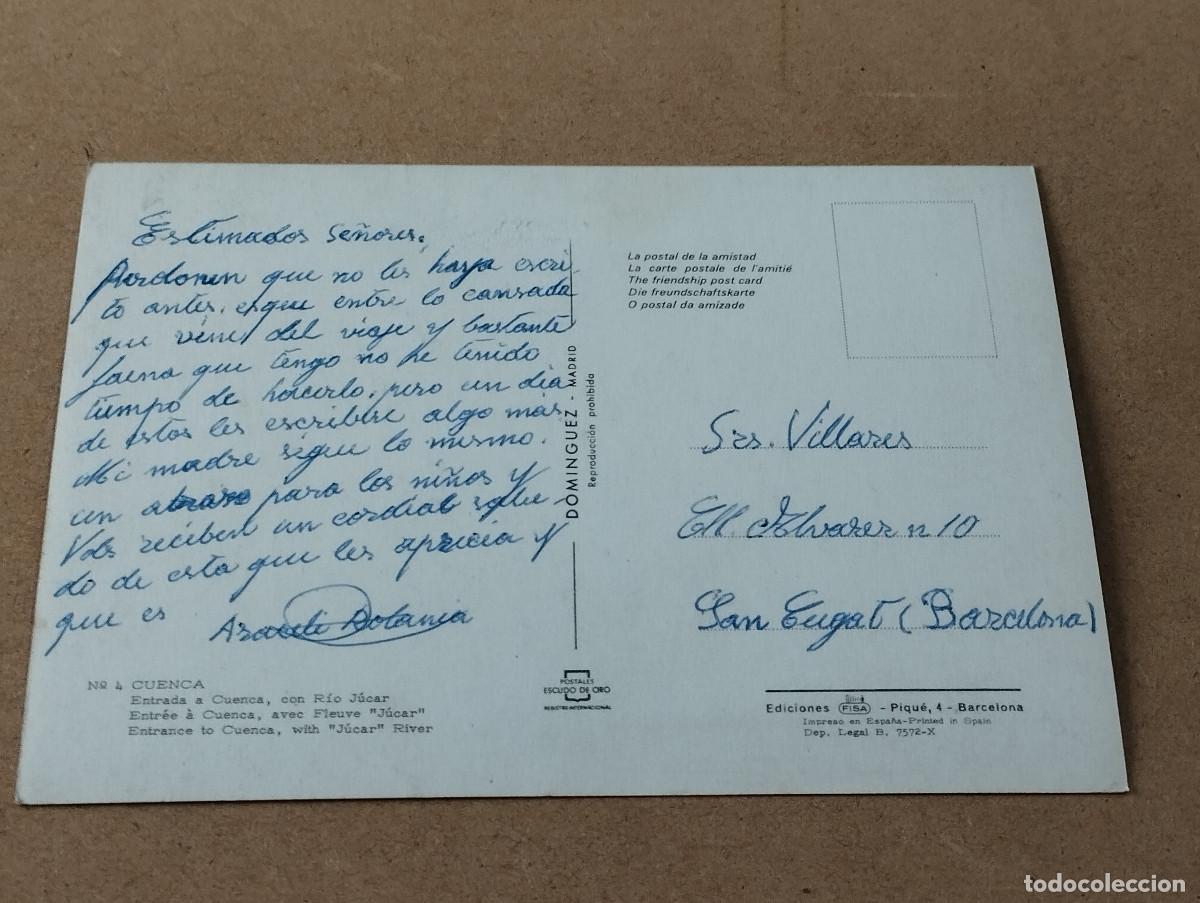 Estimados Señores.
Perdonen que no les haya escri-
to antes, esque entre lo cansada
que vine del viaje y bastante
faena que tengo no he tenido
tiempo de hacerlo, pero un dia
de estos les escribire algo más.
Mi madre sigue lo mismo.
un abrazo para los niños y
Vds reciben un cordial salu-
do de esta que les aprecia y
que es
Araceli
Nº 4 CUENCA
Entrada a Cuenca, con Río Júcar
Entrée à Cuenca, avec Fleuve "Júcar"
Entrance to Cuenca, with "Júcar" River
DOMINGUEZ - MADRID
Reproducción prohibida
POSTALES
ESCUDO DE ORO
REGISTRO INTERNACIONAL
La postal de la amistad
La carte postale de l'amitié
The friendship post card
Die freundschaftskarte
O postal da amizade
Srs. Villares
Alvarez n 10
San Cugat (Barcelona)
Ediciones FISA - Piqué, 4 - Barcelona
Impreso en España-Printed in Spain
Dep. Legal B. 7572-X
todocoleccion